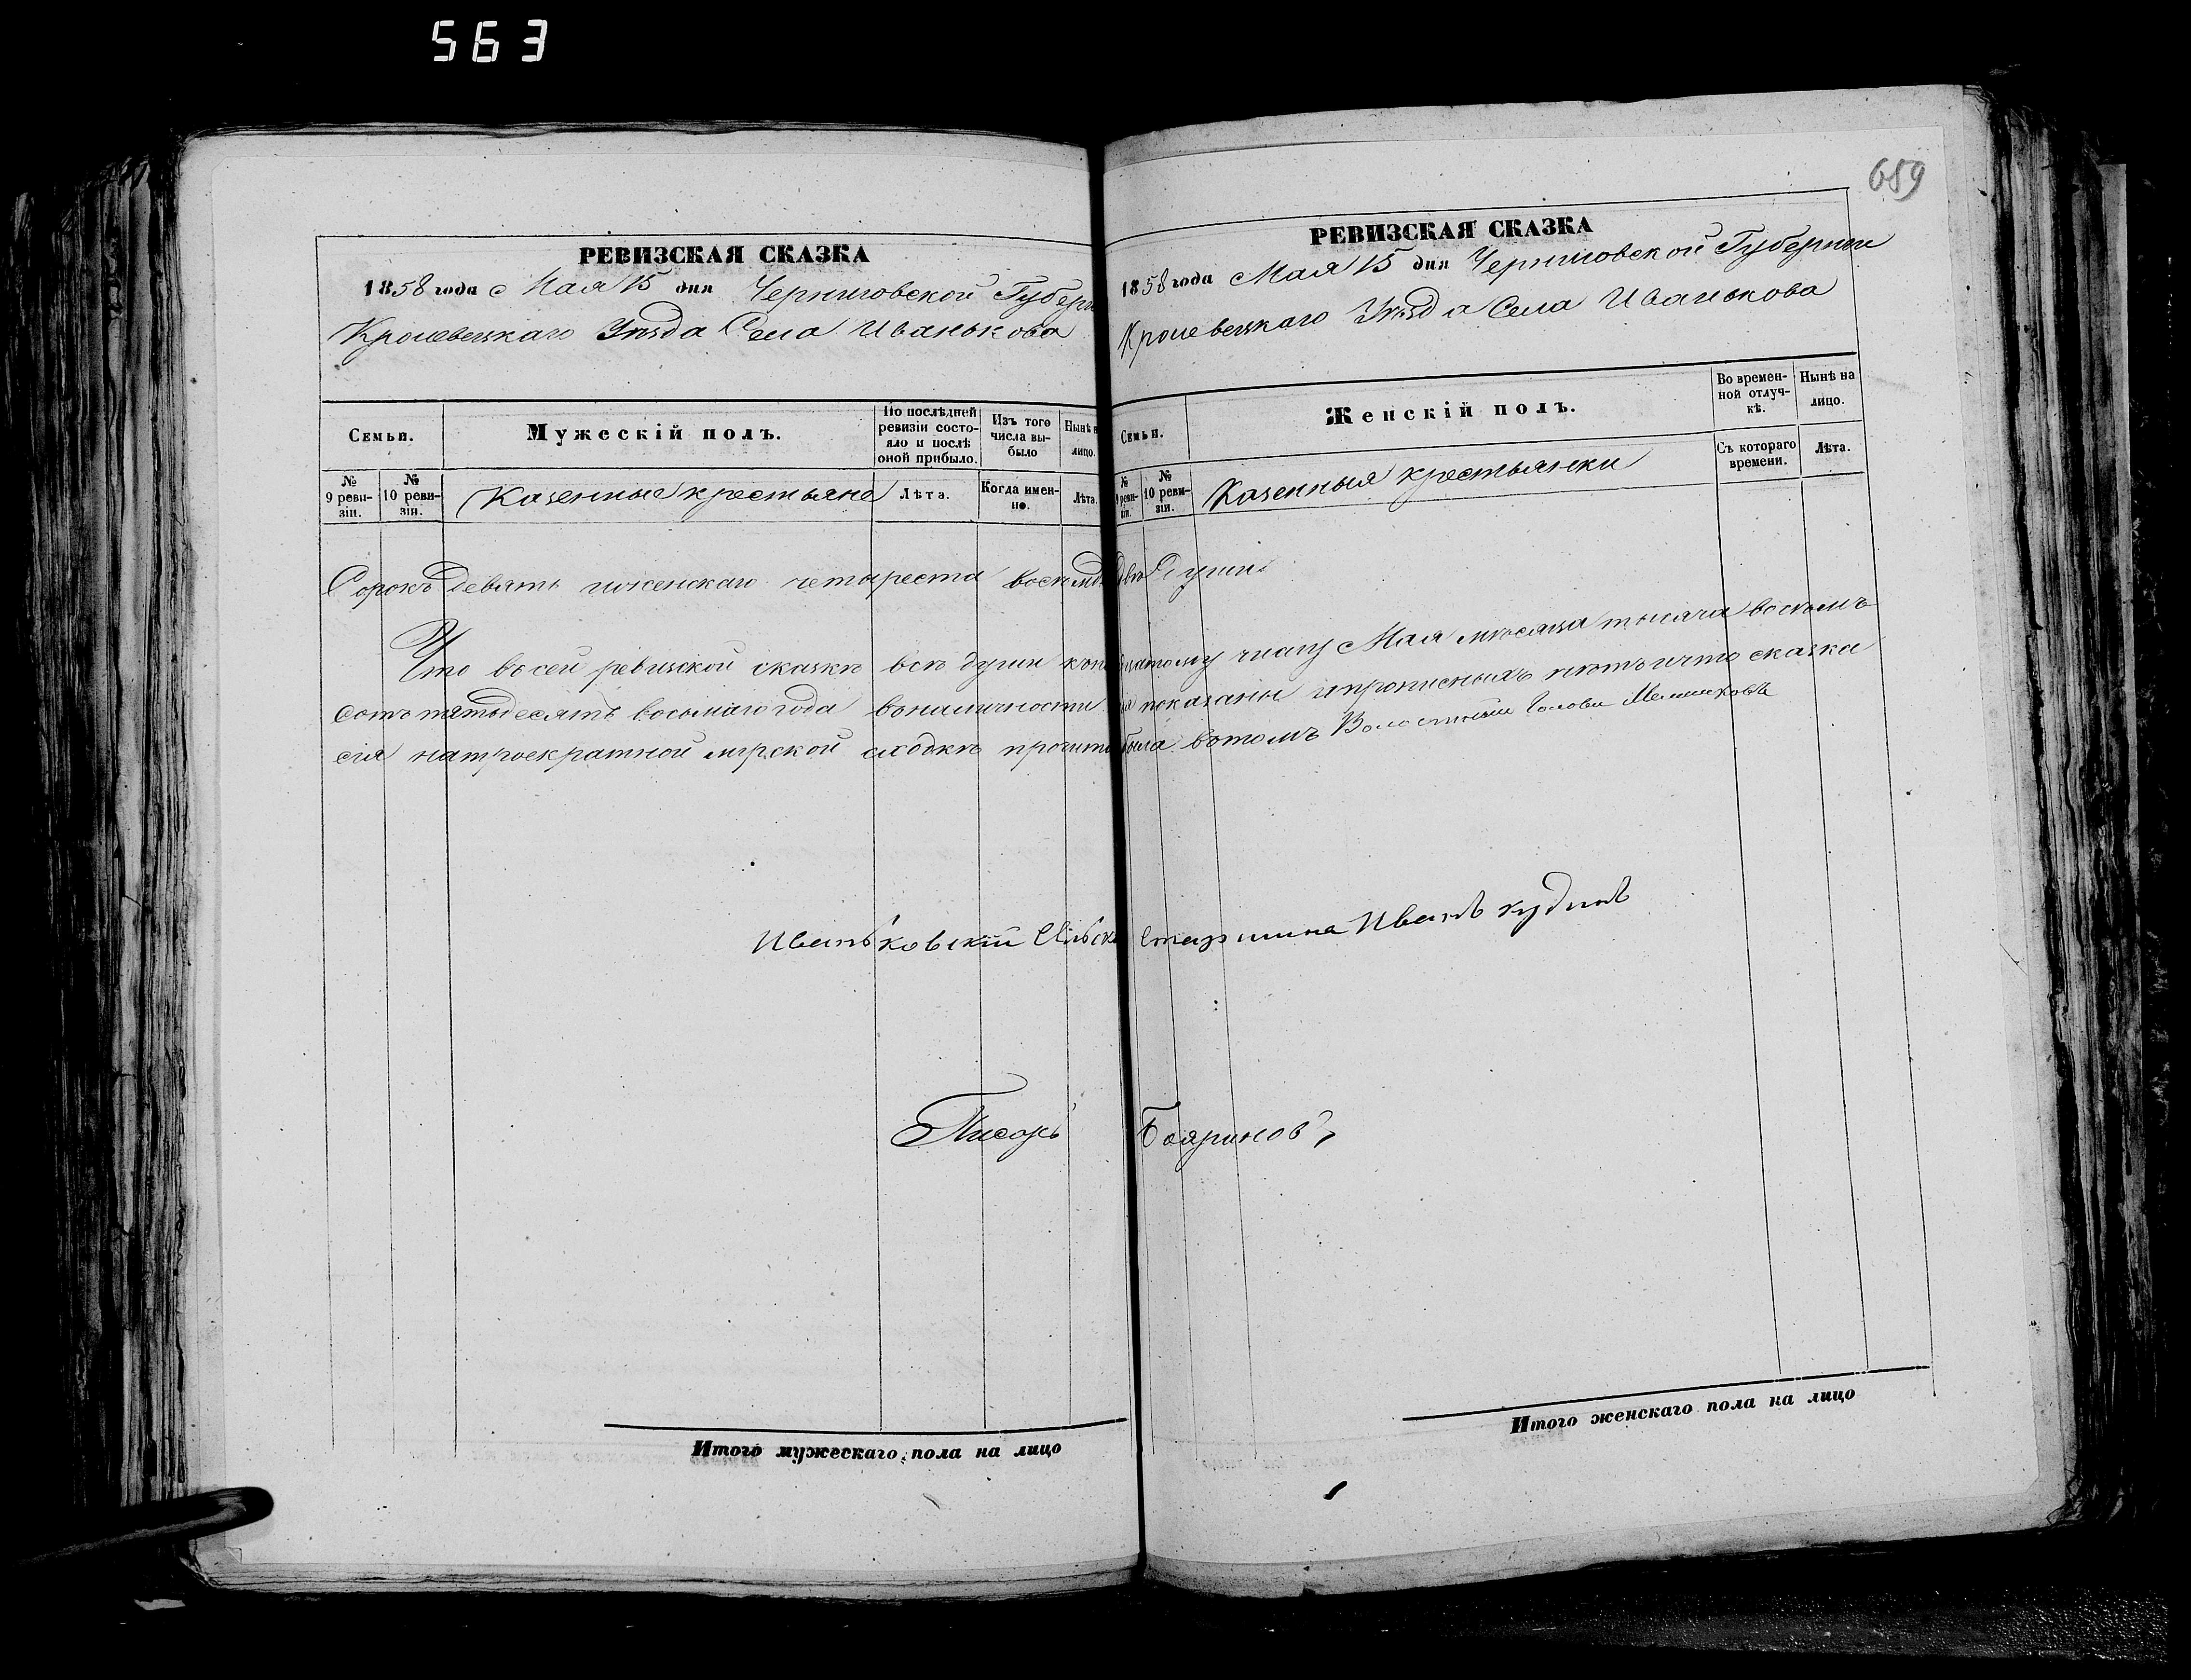 563
659
РЕВИЗСКАЯ СКАЗКА
1858 года Мая 15 дня Черниговской Губерн
Кролевецкаго Уѣзда Села Иванькова
Семьи.
Мужескій полъ.
По послѣдней ревизіи состояло и послѣ оной прибыло.
Изъ того числа выбыло
Нынѣ н лицо.
№ 9 ревизіи.
№ 10 ревизіи.
Казенные крестьяне
Лѣта.
Когда именно.
Лѣта.
РЕВИЗСКАЯ СКАЗКА
1858 года Мая 15 дня Черниговской Губернии
Кролевецкаго Уѣзда Села Иванькова
Семьи.
Женскій полъ.
Во временной отлучкѣ.
Нынѣ на лицо.
№ 9 ревизіи.
№ 10 ревизіи.
Казенныя крестьянки
Съ котораго времени.
Лѣта.
Сорокъ девять и женскаго четыреста двѣ Души
Что в сей ревизской сказкѣ всѣ души числу Мая мѣсяца тысяча восемъ
сотъ пятьдесятъ восьмаго года в наличности показаны и прописныхъ нѣтъ и что сказка
сія на троекратной мірской сходкѣ была в томъ Волостный Голова
Иваньковскій Сѣльск Старшина Иванъ Кудинъ
Писарь Бояриновъ
Итого мужескаго пола на лицо
Итого женскаго пола на лицо